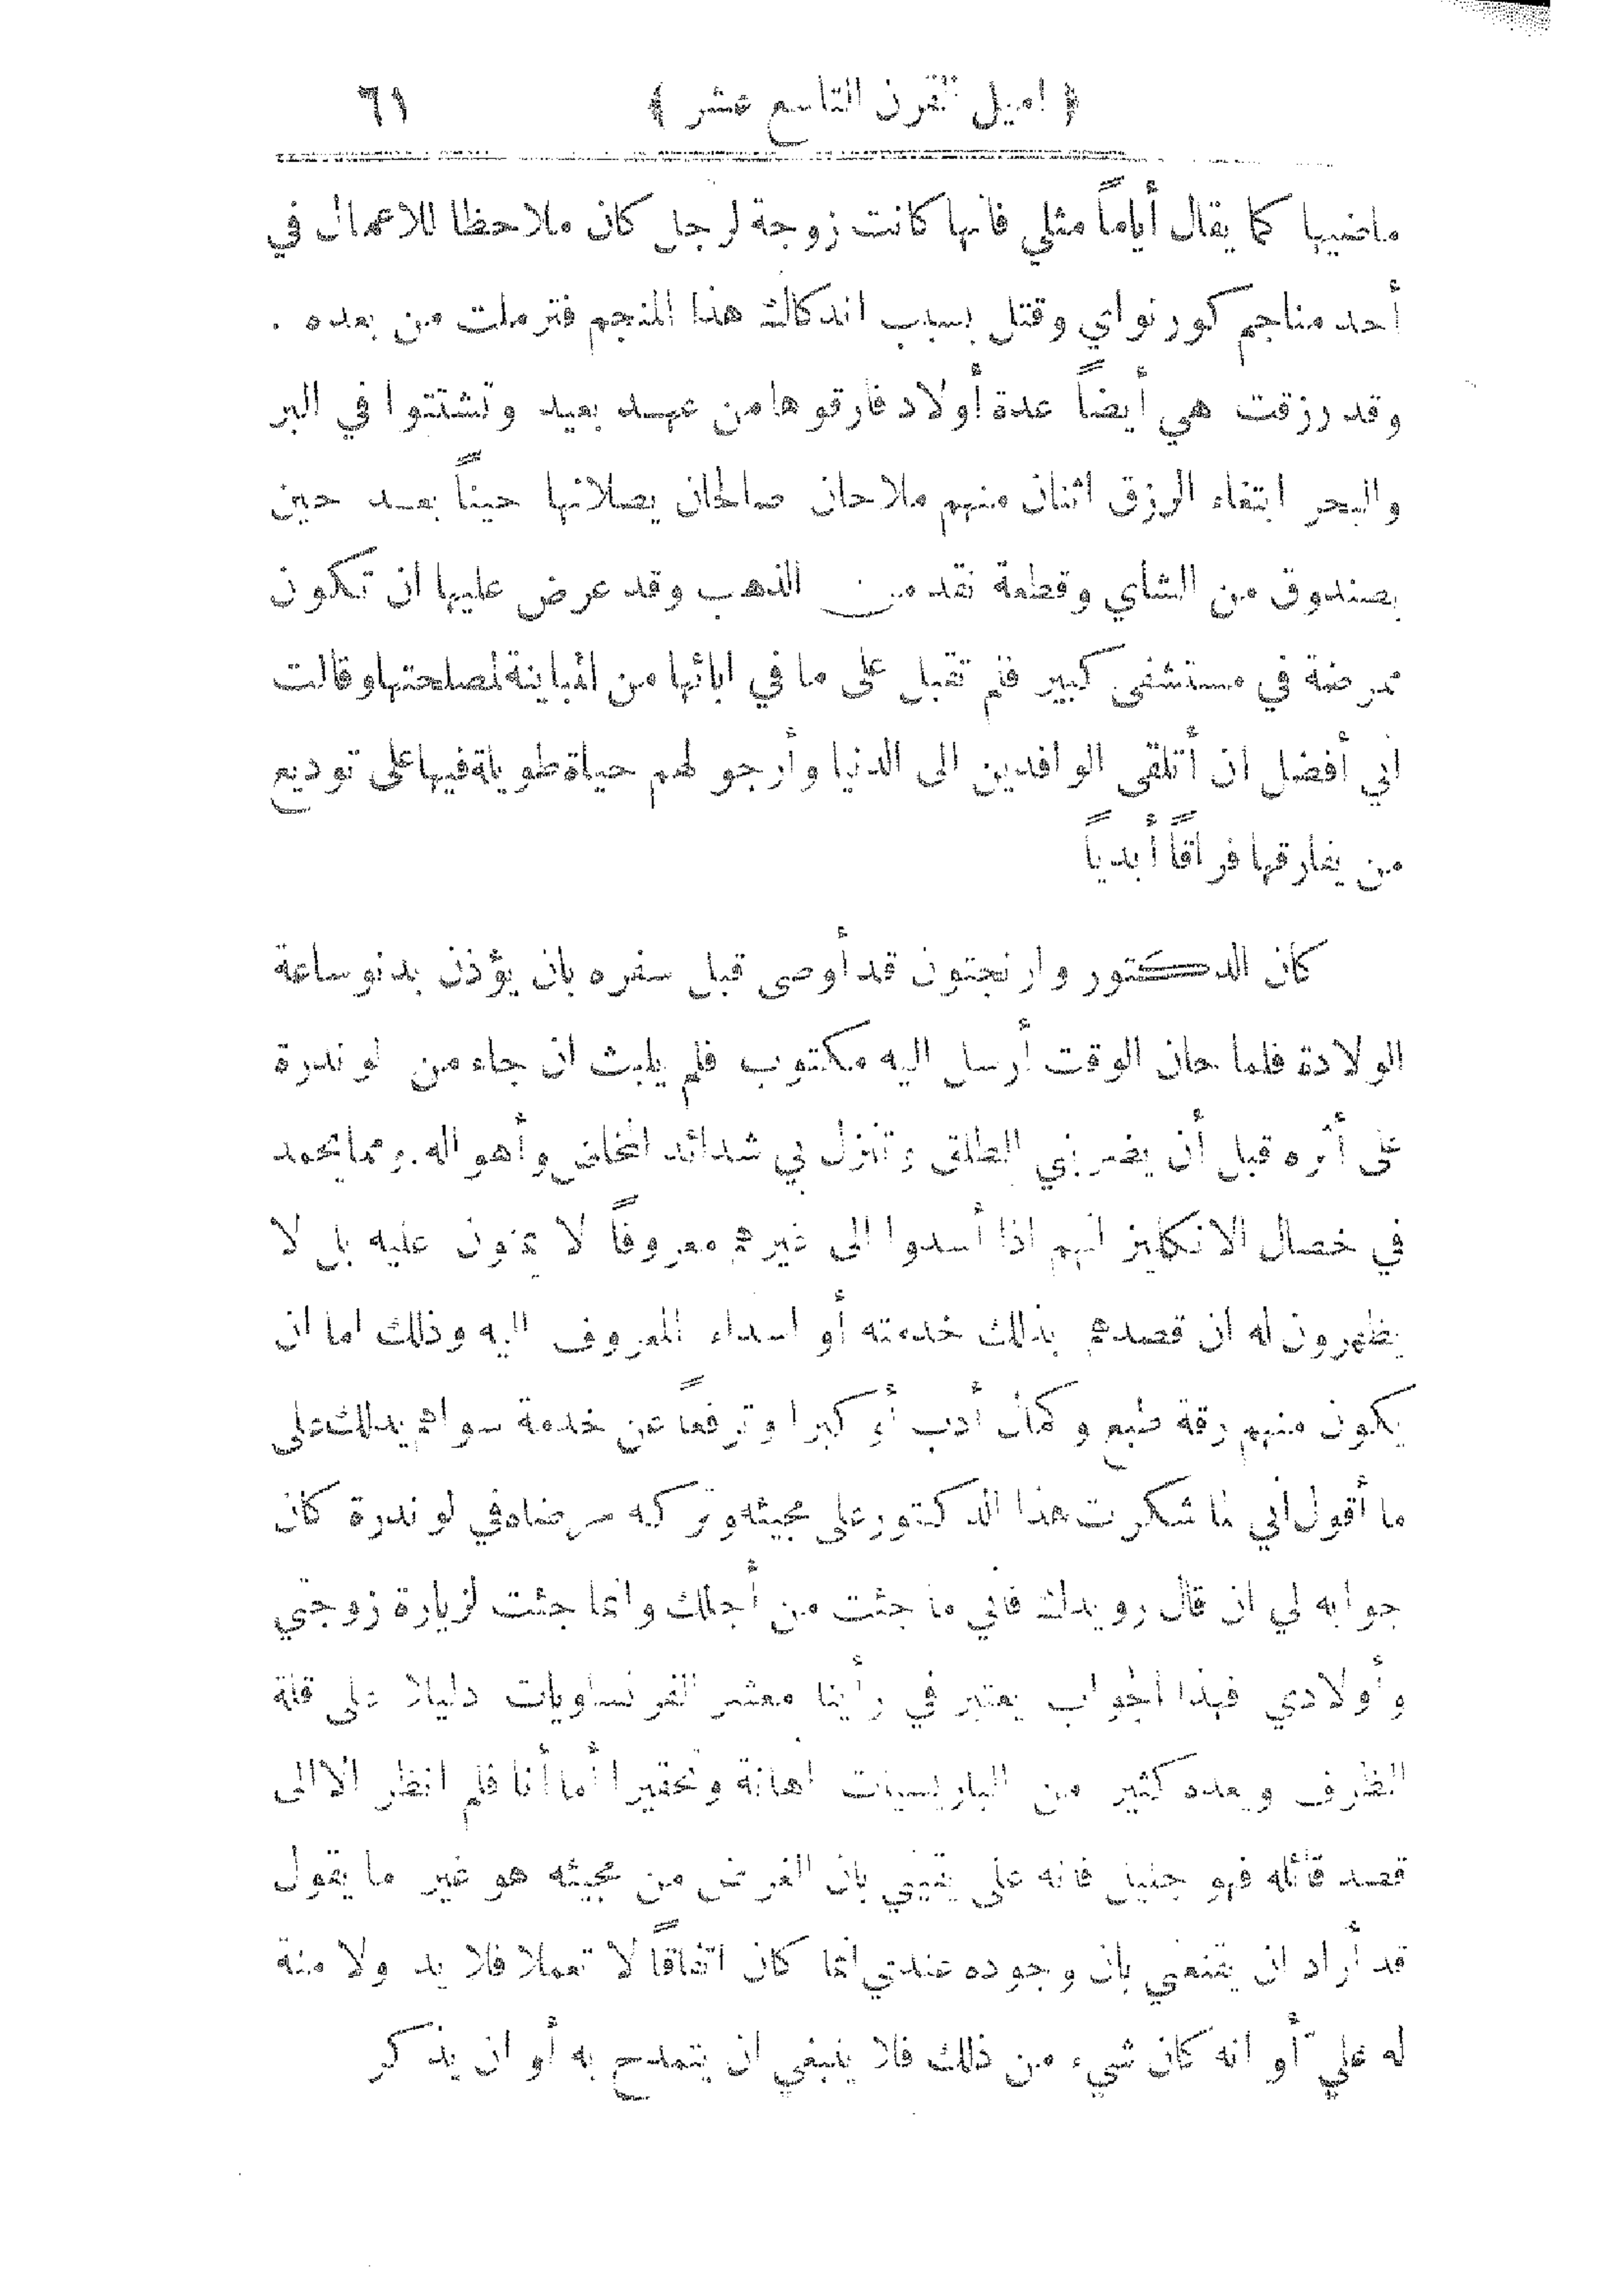 ﴿ اميل القرن التاسع عشر ﴾ ٦١
ماضيها كما يقال أياماً مثلي فانها كانت زوجة لرجل كان ملاحظا للاعمال في
أحد مناجم كورنواي وقتل بسبب اندكاك هذا المنجم فترملت من بعده .
وقد رزقت هي أيضاً عدة أولاد فارقوها من عهد بعيد وتشتتوا في البر
والبحر ابتغاء الرزق اثنان منهم ملاحان صالحان يصلانها حيناً بعد حين
بصندوق من الشاي وقطعة نقد من الذهب وقد عرض عليها ان تكون
ممرضة في مستشفى كبير فلم تقبل على ما في ابائها من المباينة لمصلحتها وقالت
اني أفضل ان أتلقى الوافدين الى الدنيا وأرجو لهم حياة طويلة فيها على توديع
من يفارقها فراقاً أبدياً
كان الدكتور وارنجتون قد أوصى قبل سفره بان يؤذن بدنو ساعة
الولادة فلما حان الوقت أرسل اليه مكتوب فلم يلبث ان جاء من لوندرة
على أثره قبل أن يضربني الطلق وتنزل بي شدائد المخاض وأهواله . ومما يحمد
في خصال الانكليز انهم اذا أسدوا الى غيرهم معروفاً لا يمنون عليه بل لا
يظهرون له ان قصدهم بذلك خدمته أو اسداء المعروف اليه وذلك اما ان
يكون منهم رقة طبع وكمال أدب أو كبرا وترفعاً عن خدمة سواهم يدلك على
ما أقول اني لما شكرت هذا الدكتور على مجيئه وتركه مرضاه في لوندرة كان
جوابه لي ان قال رويدك فاني ما جئت من أجلك وانما جئت لزيارة زوجتي
وأولادي فهذا الجواب يعتبر في رأينا معشر الفرنساويات دليلا على قلة
الظرف ويعده كثير من الباريسيات اهانة وتحقيرا أما أنا فلم انظر الا الى
قصد قائله فهو جليل فانه على يقيني بان الغرض من مجيئه هو غير ما يقول
قد أراد ان يقنعني بان وجوده عندي انما كان اتفاقاً لا تعملا فلا يد ولا منة
له عليّ أو انه كان شيء من ذلك فلا ينبغي ان يتمدح به أو ان يذكر